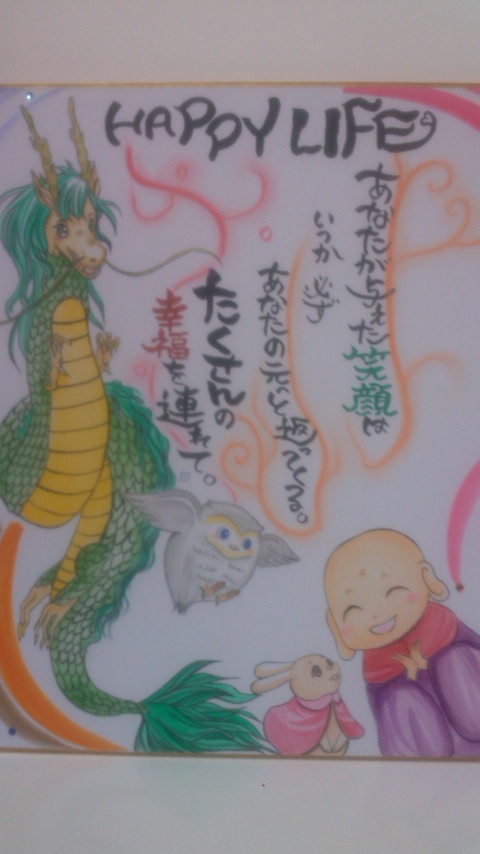 HAPPY LIFE
あなたが与えた笑顔は
いつか必ず
あなたの元へと返ってくる。
たくさんの
幸福を連れて。